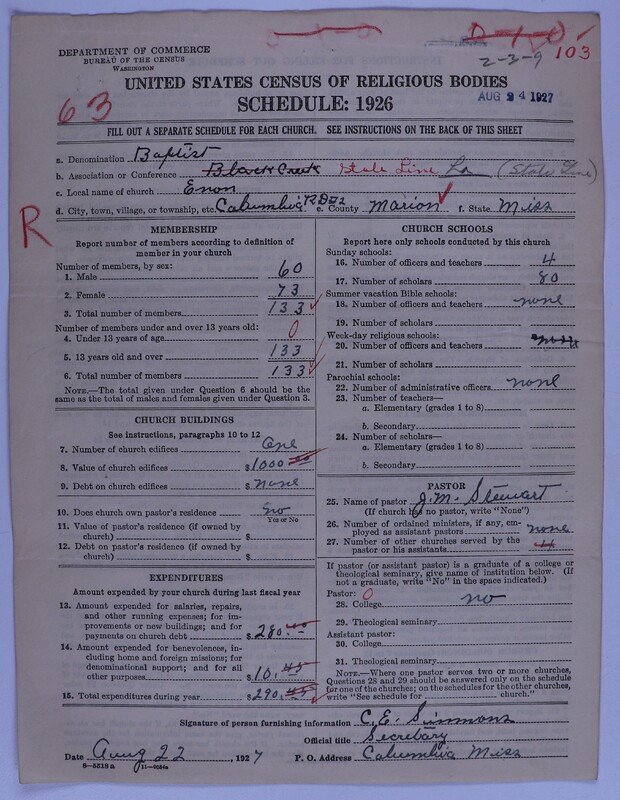 D-1-0 103
2-3-9
DEPARTMENT OF COMMERCE
BUREAU OF THE CENSUS
WASHINGTON
AUG 24 1927
63
UNITED STATES CENSUS OF RELIGIOUS BODIES
SCHEDULE: 1926
FILL OUT A SEPARATE SCHEDULE FOR EACH CHURCH. SEE INSTRUCTIONS ON THE BACK OF THIS SHEET
a. Denomination Baptist
b. Association or Conference Black Creek State Line La (State Line)
c. Local name of church Enon
d. City, town, village, or township, etc. Columbia RD#2 e. County Marion f. State Miss
R
MEMBERSHIP
Report number of members according to definition of
member in your church
Number of members, by sex:
1. Male 60
2. Female 73
3. Total number of members 133
Number of members under and over 13 years old:
4. Under 13 years of age 0
5. 13 years old and over 133
6. Total number of members 133
NOTE.—The total given under Question 6 should be
same as the total of males and females given under Question 3.
CHURCH BUILDINGS
See instructions, paragraphs 10 to 12
7. Number of church edifices One
8. Value of church edifices $1000
9. Debt on church edifices $none
10. Does church own pastor's residence no
Yes or No
11. Value of pastor's residence (if owned by
church) $
12. Debt on pastor's residence (if owned by
church) $
EXPENDITURES
Amount expended by your church during last fiscal year
13. Amount expended for salaries, repairs,
and other running expenses; for im-
provements or new buildings; and for
payments on church debt $280.
14. Amount expended for benevolences, in-
cluding home and foreign missions; for
denominational support; and for all
other purposes $10.45
15. Total expenditures during year $290.45
CHURCH SCHOOLS
Report here only schools conducted by this church
Sunday schools:
16. Number of officers and teachers 4
17. Number of scholars 80
Summer vacation Bible schools:
18. Number of officers and teachers none
19. Number of scholars
Week-day religious schools:
20. Number of officers and teachers none
21. Number of scholars
Parochial schools:
22. Number of administrative officers none
23. Number of teachers—
a. Elementary (grades 1 to 8)
b. Secondary
24. Number of scholars—
a. Elementary (grades 1 to 8)
b. Secondary
PASTOR
25. Name of pastor J.M. Stewart
(If church has no pastor, write "None")
26. Number of ordained ministers, if any, em-
ployed as assistant pastors none
27. Number of other churches served by the
pastor or his assistants
If pastor (or assistant pastor) is a graduate of a college or
theological seminary, give name of institution below. (If
not a graduate, write "No" in the space indicated.)
Pastor: 0
28. College no
29. Theological seminary
Assistant pastor:
30. College
31. Theological seminary
NOTE.—Where one pastor serves two or more churches,
Questions 28 and 29 should be answered only on the schedule
for one of the churches; on the schedules for the other churches,
write "See schedule for church."
Signature of person furnishing information C.E. Simmons
Official title Secretary
Date Aug 22, 1927 P. O. Address Columbia Miss
8-5518 a 11-9054a